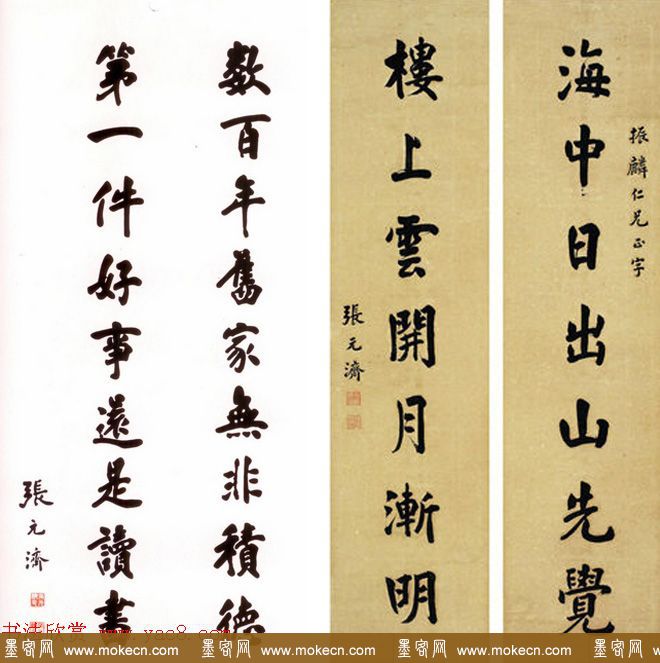 振麟仁兄正字
海中日出山先覺
樓上雲開月漸明
張元濟
數百年舊家無非積德
第一件好事還是讀書
張元濟
书法欣赏 www.yac8.com
墨客网 www.mokecn.com 墨客网 www.mokecn.com 墨客网 www.mokecn.com